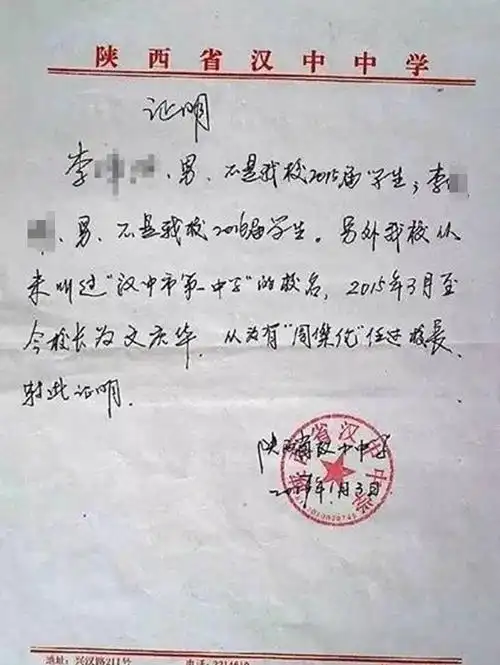 陕西省汉中中学
证明
李 、男、不是我校2015届学生；李
、男、不是我校2016届学生。另外我校从
未叫过“汉中市第一中学”的校名，2015年3月至
今校长为文庆华，从未有“周杰伦”任过校长、
特此证明.
陕西省汉中中学
年1月3日
陕西省汉中中学
地址：兴汉路211号 电话：2214610